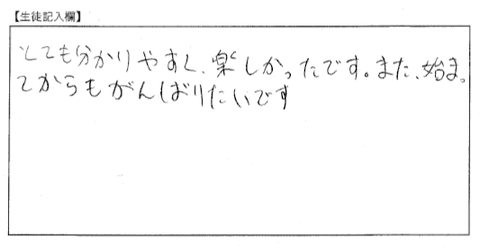 【生徒記入欄】
とても分かりやすく、楽しかったです。また、始まっ
てからもがんばりたいです